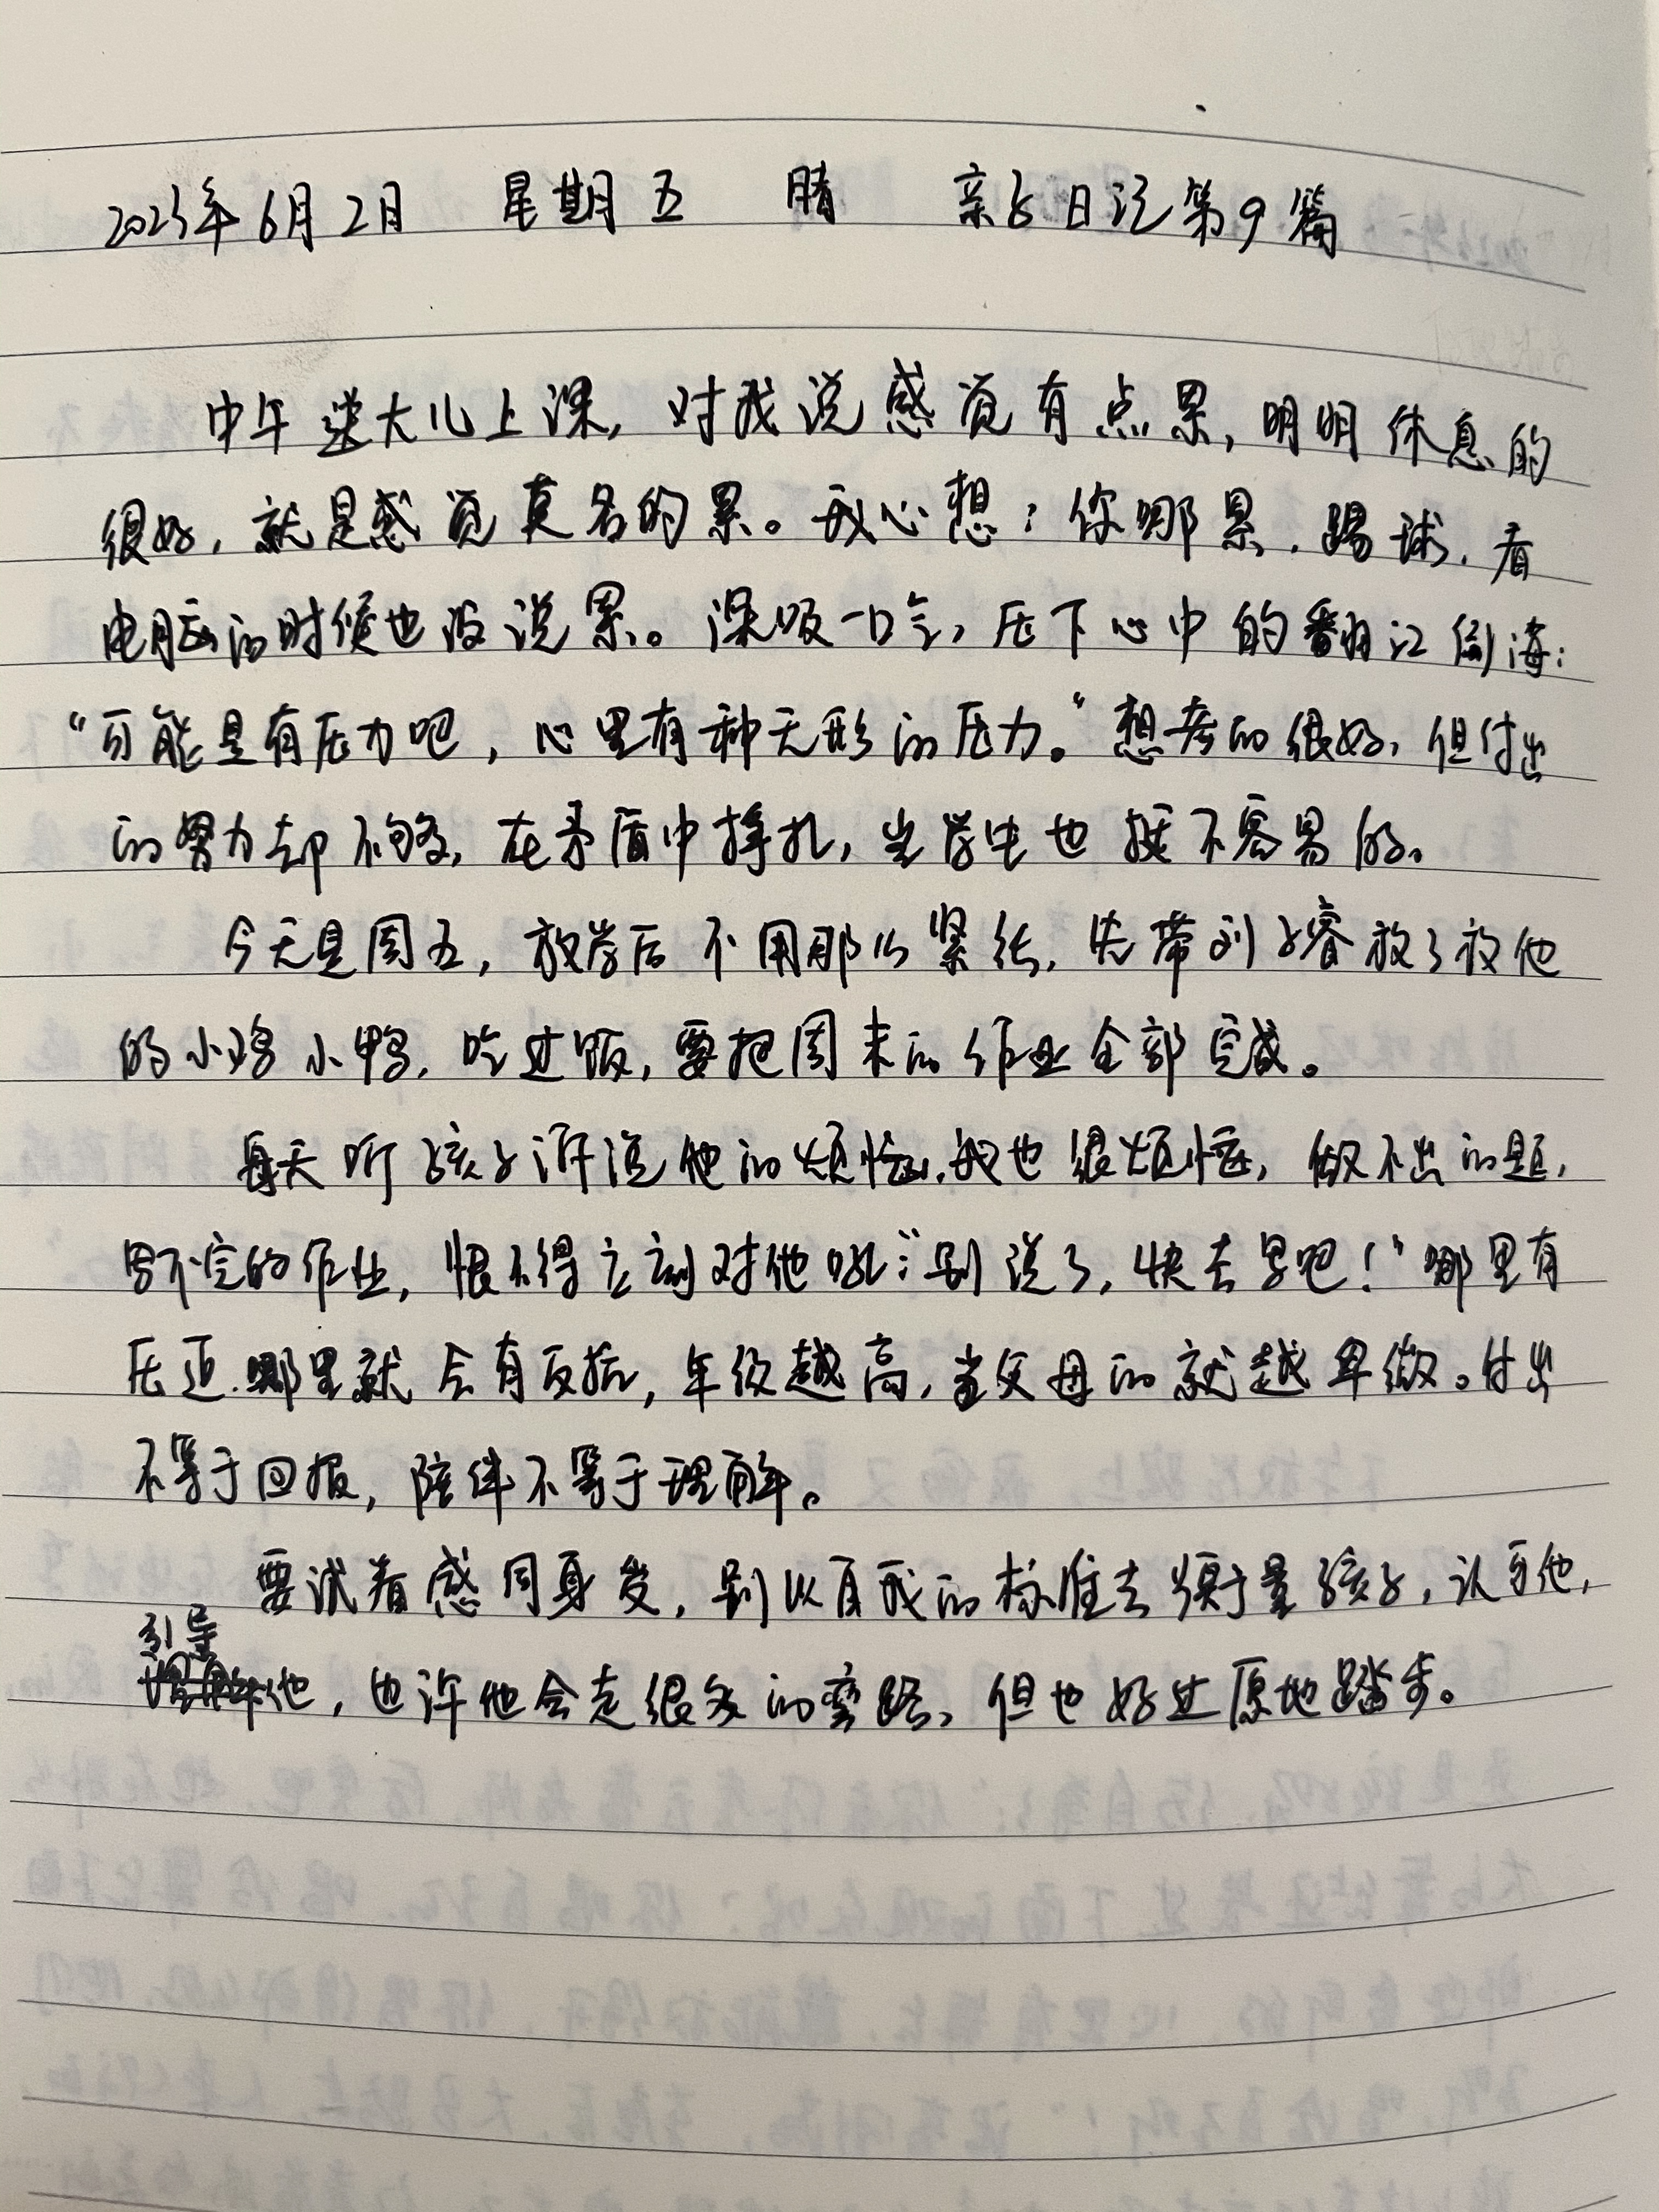 2023年6月2日 星期五 晴 亲子日记第9篇
中午送大儿上课，对我说感觉有点累，明明休息的
很好，就是感觉莫名的累。我心想：你哪累，踢球，看
电脑的时候也没说累。深吸一口气，压下心中的翻江倒海：
“可能是有压力吧，心里有种无形的压力。”想考的很好，但付出
的努力却不够，在矛盾中挣扎，当学生也挺不容易的。
今天是周五，放学后不用那么紧张，先带刘子睿放了放他
的小鸡小鸭，吃过饭，要把周末的作业全部完成。
每天听孩子诉说他的烦恼，我也很烦恼，做不出的题，
写不完的作业，恨不得立刻对他吼：“别说了，快去写吧！”哪里有
压迫，哪里就会有反抗，年级越高，当父母的就越卑微。付出
不等于回报，陪伴不等于理解。
要试着感同身受，别以自我的标准去衡量孩子，认可他，
引导
他，也许他会走很多的弯路，但也好过原地踏步。